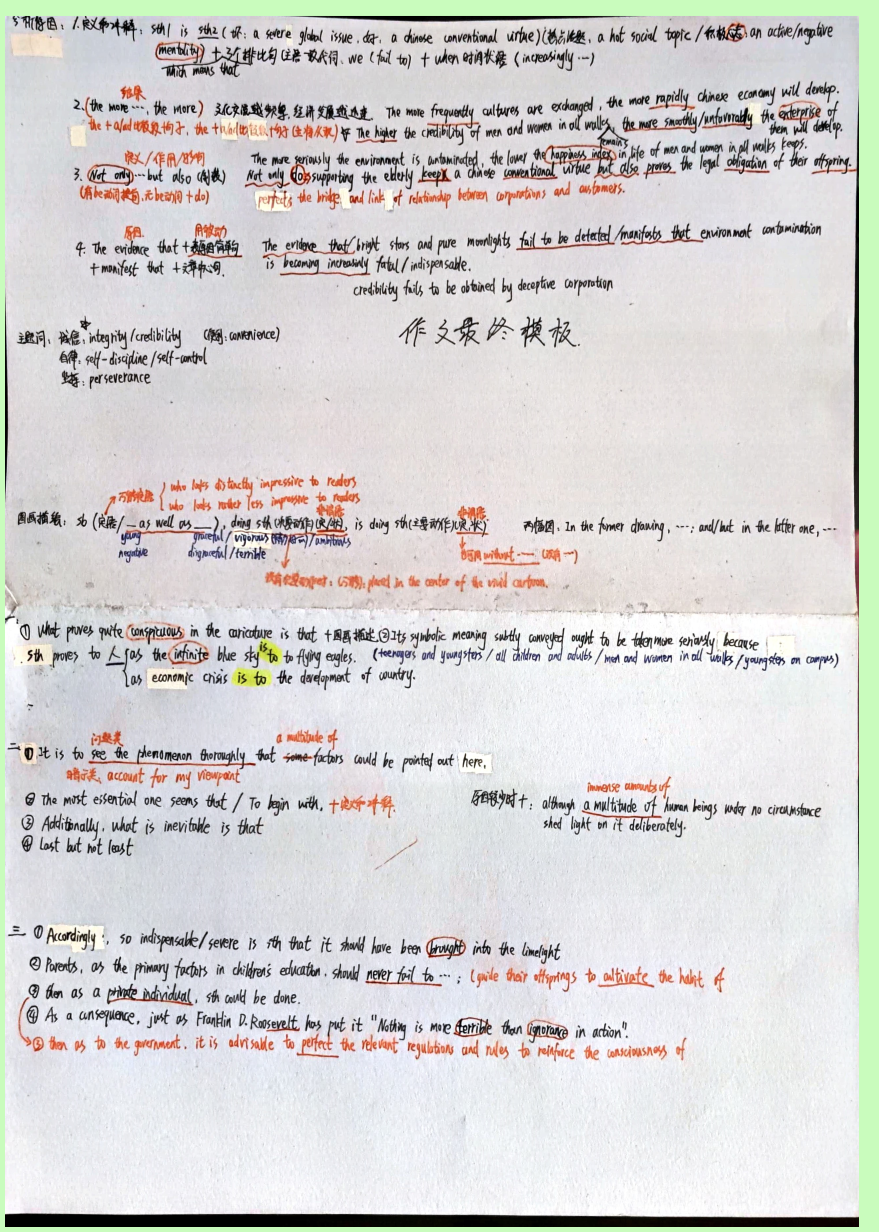 1. 定义和冲解: sth1 is sth2 (坏: a severe global issue, 好: a chinese conventional virtue) (热点话题, a hot social topic / 积极心态: an active/negative
mentality) + 3个排比句 (主语一致代词, we (fail to) + when 时间状语 (increasingly …)
which means that
结果
2. (the more …, the more) 文化交流越频繁, 经济发展越迅速. The more frequently cultures are exchanged, the more rapidly chinese economy will develop.
The higher the credibility of men and women in all walks remains, the more smoothly/unfavorably the enterprise of
them will develop.
定义/作用/影响
The more seriously the environment is contaminated, the lower the happiness index in life of men and women in all walks keeps.
3. Not only … but also Not only does supporting the elderly keep a chinese conventional virtue but also proves the legal obligation of their offspring.
(有be动词提前, 无be动词+do) perfects the bridge and link of relationship between corporations and customers.
原因 用被动
4. The evidence that + The evidence that bright stars and pure moonlights fail to be detected/manifests that environment contamination
+ manifest that + 文章中心词. is becoming increasinly fatal/indispensable.
credibility fails to be obtained by deceptive corporation
主题词: 诚信: integrity/credibility (便利: convenience)
作文最终模板.
自律: self-discipline/self-control
坚持: perseverance
万能定语 who looks distinctly impressive to readers
who looks rather less impressive to readers
图画描述: sb (定语/__ as well as __), doing sth (次要动作) (定/状), is doing sth (主要动作) (定/状) 两幅图: In the former drawing, …; and/but in the latter one, …
young graceful / vigorous / ambitious
negative disgraceful/terrible
可用 without …
placed in the center of the vivid cartoon.
① What proves quite conspicuous in the caricature is that + 图画描述 ② Its symbolic meaning subtly conveyed ought to be taken more seriously because
sth proves to 人 as the infinite blue sky is to to flying eagles. (teenagers and youngsters / all children and adults / men and women in all walks / youngsters on campus)
as economic crisis is to the development of country.
问题类 a multitude of
二 ① It is to see the phenomenon thoroughly that some factors could be pointed out here,
暗示类: account for my viewpoint
② The most essential one seems that / To begin with, + 定义和冲解.
immense amounts of
原因较少时+: although a multitude of human beings under no circumstance
③ Additionally, what is inevitable is that
shed light on it deliberately.
④ Last but not least
三 ① Accordingly, so indispensable/severe is sth that it should have been brought into the limelight
② Parents, as the primary factors in children's education, should never fail to …; (guide their offsprings to cultivate the habit of
③ then as a private individual, sth could be done.
④ As a consequence, just as Franklin D. Roosevelt has put it "Nothing is more terrible than ignorance in action".
⑤ then as to the government, it is advisable to perfect the relevant regulations and rules to reinforce the consciousness of